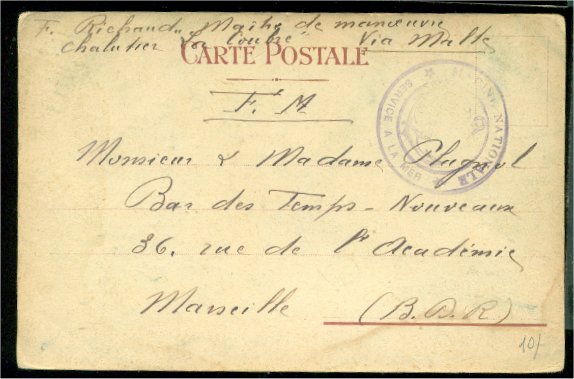 F. Richaud Maître de manœuvre
Chalutier "La Coubre" Via Malte
CARTE POSTALE
F. M
MARINE NATIONALE
SERVICE A LA MER
Monsieur & Madame Plagnol
Bar des Temps-Nouveaux
36. rue de l'Académie
Marseille (B.D.R)
10/